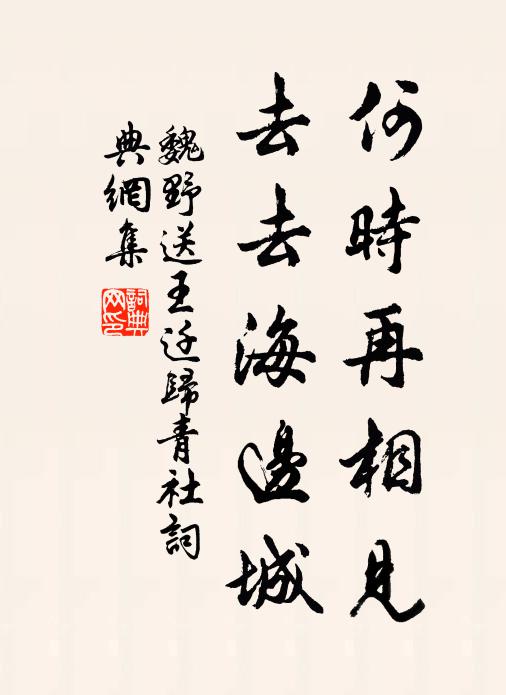 何時再相見
去去海邊城
魏野送王迁歸青社詞
典網集
詞典
网印